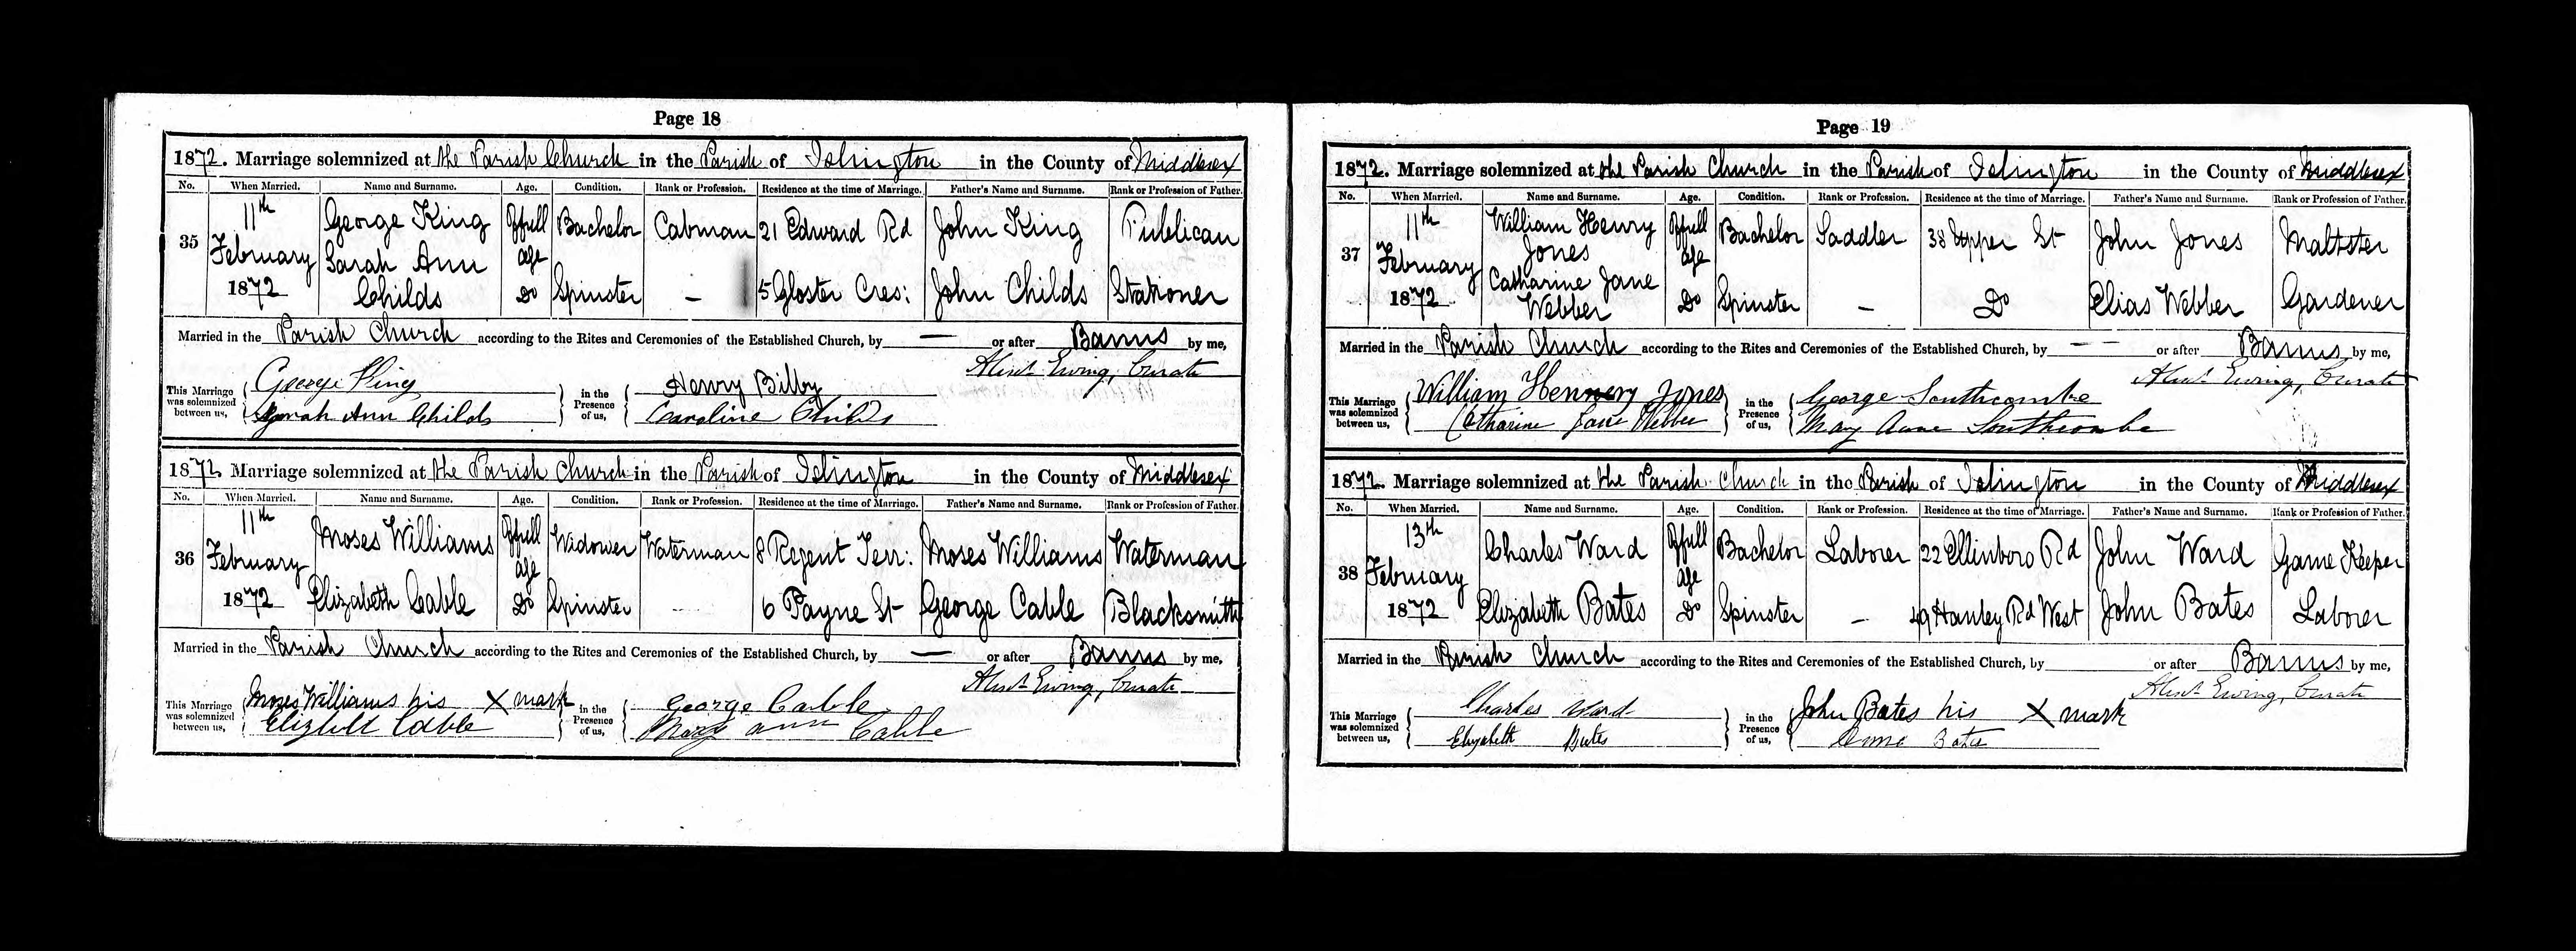 Page 18
1872. Marriage solemnized at the Parish Church in the Parish of Islington in the County of Middlesex
No. When Married. Name and Surname. Age. Condition. Rank or Profession. Residence at the time of Marriage. Father's Name and Surname. Rank or Profession of Father.
35 11th February 1872 George King Of full age Bachelor Cabman 21 Edward Rd John King Publican
Sarah Ann Childs Do Spinster — 5 Gloster Cres: John Childs Stationer
Married in the Parish Church according to the Rites and Ceremonies of the Established Church, by — or after Banns by me,
Alexr Ewing, Curate
This Marriage was solemnized between us, George King in the Presence of us, Henry Bilby
Sarah Ann Childs Caroline Childs
1872. Marriage solemnized at the Parish Church in the Parish of Islington in the County of Middlesex
No. When Married. Name and Surname. Age. Condition. Rank or Profession. Residence at the time of Marriage. Father's Name and Surname. Rank or Profession of Father.
36 11th February 1872 Moses Williams Of full age Widower Waterman 8 Regent Terr: Moses Williams Waterman
Elizabeth Cable Do Spinster — 6 Payne St George Cable Blacksmith
Married in the Parish Church according to the Rites and Ceremonies of the Established Church, by — or after Banns by me,
Alexr Ewing, Curate
This Marriage was solemnized between us, Moses Williams his X mark in the Presence of us, George Cable
Elizbelt Cable Mary ann Cable
Page 19
1872. Marriage solemnized at the Parish Church in the Parish of Islington in the County of Middlesex
No. When Married. Name and Surname. Age. Condition. Rank or Profession. Residence at the time of Marriage. Father's Name and Surname. Rank or Profession of Father.
37 11th February 1872 William Henry Jones Of full age Bachelor Saddler 38 Upper St John Jones Maltster
Catharine Jane Webber Do Spinster — Do Elias Webber Gardener
Married in the Parish Church according to the Rites and Ceremonies of the Established Church, by — — or after Banns by me,
Alexr Ewing, Curate
This Marriage was solemnized between us, William Hennery Jones in the Presence of us, George Southcombe
Catharine Jane Webber Mary Anne Southcombe
1872. Marriage solemnized at the Parish Church in the Parish of Islington in the County of Middlesex
No. When Married. Name and Surname. Age. Condition. Rank or Profession. Residence at the time of Marriage. Father's Name and Surname. Rank or Profession of Father.
38 13th February 1872 Charles Ward Of full age Bachelor Laborer 22 Ellinboro Rd John Ward Game Keeper
Elizabeth Bates Do Spinster — 49 Hanley Rd West John Bates Laborer
Married in the Parish Church according to the Rites and Ceremonies of the Established Church, by or after Banns by me,
Alexr Ewing, Curate
This Marriage was solemnized between us, Charles Ward in the Presence of us, John Bates his X mark
Elizabeth Bates Bates